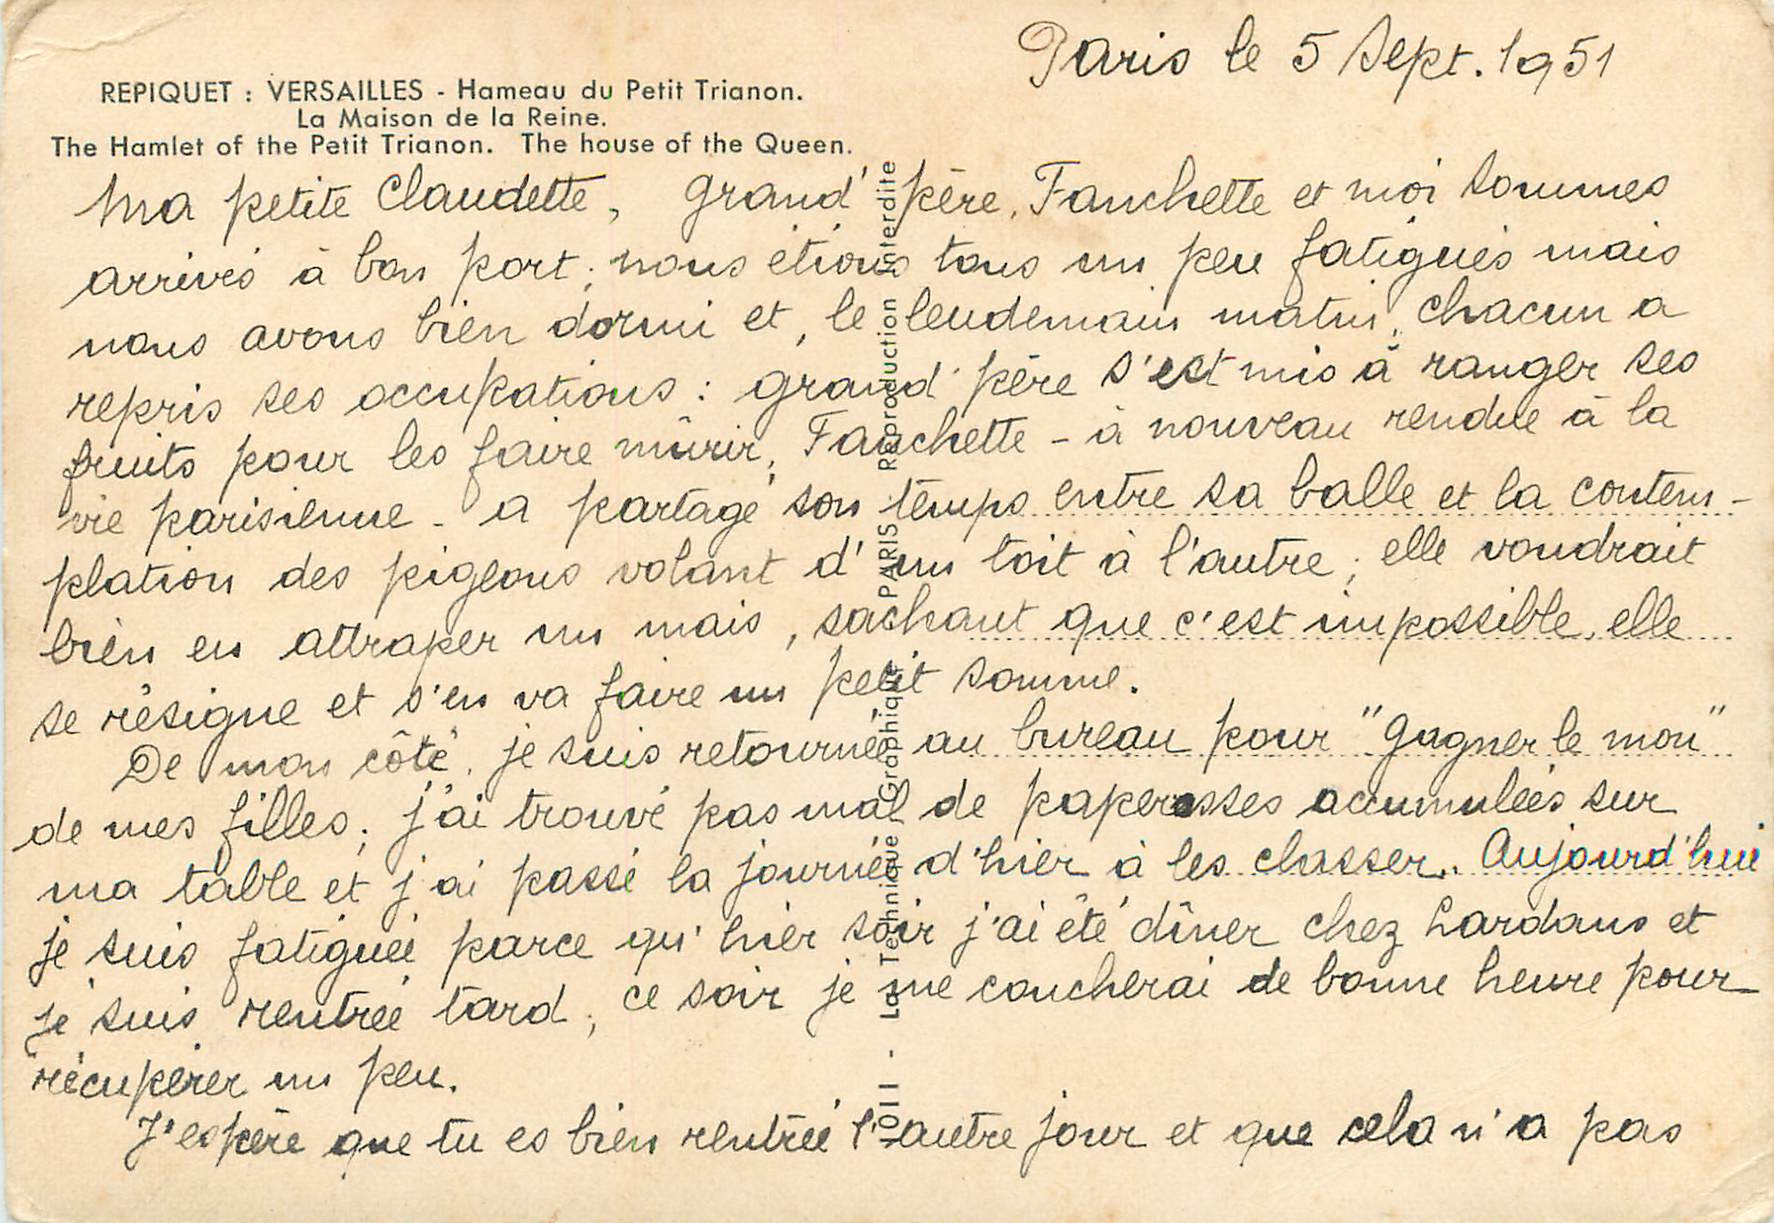 Paris le 5 Sept. 1951
REPIQUET : VERSAILLES - Hameau du Petit Trianon.
La Maison de la Reine.
The Hamlet of the Petit Trianon. The house of the Queen.
Ma petite Claudette, grand' père, Fanchette et moi sommes
arrivés à bon port ; nous étions tous un peu fatigués mais
nous avons bien dormi et, le lendemain matin, chacun a
repris ses occupations : grand' père s'est mis à ranger ses
fruits pour les faire mûrir, Fanchette - à nouveau rendue à la
vie parisienne - a partagé son temps entre sa balle et la contem-
plation des pigeons volant d'un toit à l'autre ; elle voudrait
bien en attraper un mais, sachant que c'est impossible, elle
se résigne et s'en va faire un petit somme.
De mon côté, je suis retournée au bureau pour "gagner le mou"
de mes filles ; j'ai trouvé pas mal de paperasses accumulées sur
ma table et j'ai passé la journée d'hier à les classer. Aujourd'hui
je suis fatiguée parce qu'hier soir j'ai été dîner chez Lardans et
je suis rentrée tard ; ce soir je me coucherai de bonne heure pour
récupérer un peu.
J'espère que tu es bien rentrée l'autre jour et que cela n'a pas
La Technique Graphique PARIS Reproduction Interdite